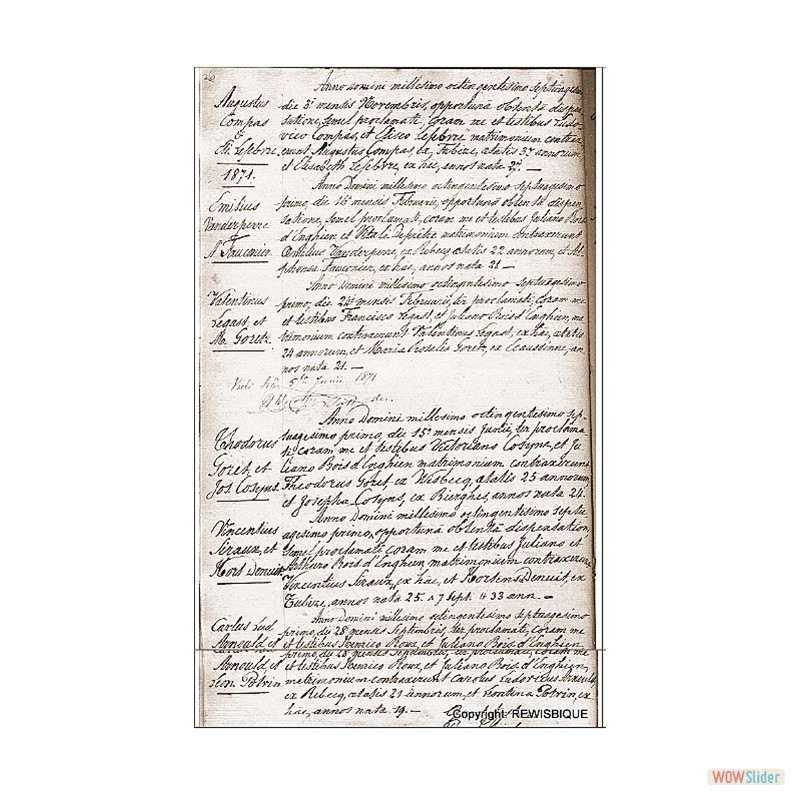 26
Anno Domini millesimo octingentesimo septuagesimo
Augustus
Compas
et
El. Lefebvre.
die 3ª mensis Novembris, opportunâ obtentâ dispen
satione, semel proclamati, coram me et testibus Ludo
vico Compas, et Eliseo Lefebvre matrimonium contrax
erunt Augustus Compas, ex Tubize, aetatis 37 annorum
et Elisabeth Lefebvre, ex hac, annos nata 27. —
1871.
Anno Domini millesimo octingentesimo septuagesimo
Emilius
Vanderperre
A. Fauconier.
primo, die 16ª mensis Februarii, opportunâ obtentâ dispen
satione, semel proclamati, coram me et testibus Juliano Bois
d'Enghien et Vitali Depiètre matrimonium contraxerunt
Emilius Vanderperre, ex Rebecq aetatis 22 annorum, et Al
phonsa Fauconier, ex hac, annos nata 21 —
Anno Domini millesimo octingentesimo septuagesimo
Valentinus
Legast, et
M. Goret.
primo, die 24ª mensis Februarii, ter proclamati, coram me
et testibus Francisco Legast, et Juliano Bois d'Enghien, ma
trimonium contraxerunt Valentinus Legast, ex hac, aetatis
24 annorum, et Maria Rosalis Goret, ex Ecaussinne, an
nos nata 21. —
5ta Junii 1871
Anno Domini millesimo octingentesimo sep
Theodorus
Goret, et
Jos Cosyns.
tuagesimo primo, die 15ª mensis Junii, ter proclama
ti coram me et testibus Victoriano Cosyns, et Ju
liano Bois d'Enghien matrimonium contraxerunt
Theodorus Goret, ex Wisbecq, aetatis 25 annorum,
et Josepha Cosyns, ex Bierghes, annos nata 24.
Anno Domini millesimo octingentesimo septu
Vincentius
Siraux, et
Hort Denuit
agesimo primo, opportunâ obtentâ dispensatione,
semel proclamati coram me et testibus Juliano et
Arthuro Bois d'Enghien, matrimonium contraxerunt
Vincentius Siraux, ex hac, et Hortensia Denuit, ex
Tubize, annos nata 25. 7 sept. 33 ann. —
Anno Domini millesimo octingentesimo septuagesimo
Carlus Lud
Arnould et
primo, die 28ª mensis Septembris, ter proclamati, coram me
et testibus Henrico Roux, et Juliano Bois d'Enghien,
Arnould et
Leon. Potrin
primo, die 28ª mensis Septembris, ter proclamati, coram me
et testibus Henrico Roux, et Juliano Bois d'Enghien,
matrimonium contraxerunt Carolus Ludovicus Arnould
ex Rebecq, aetatis 21 annorum, et Leontina Potrin, ex
hac, annos nata 19. —
Copyright REWISBIQUE
WOWSlider